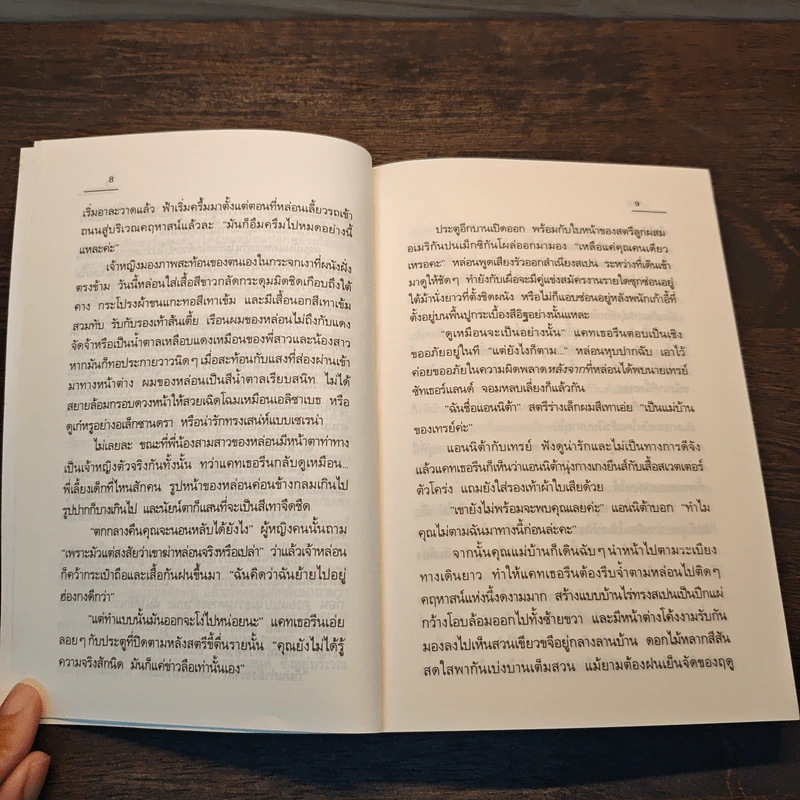 8
เริ่มอาละวาดแล้ว ฟ้าเริ่มครึ้มมาตั้งแต่ตอนที่หล่อนเลี้ยวรถเข้า
ถนนสู่บริเวณคฤหาสน์แล้วละ “มันก็อึมครึมไปหมดอย่างนี้
แหละค่ะ”
เจ้าหญิงมองภาพสะท้อนของตนเองในกระจกเงาที่ผนังฝั่ง
ตรงข้าม วันนี้หล่อนใส่เสื้อสีขาวกลัดกระดุมมิดชิดเกือบถึงใต้
คาง กระโปรงผ้าขนแกะทอสีเทาเข้ม และมีเสื้อนอกสีเทาเข้ม
สวมทับ รับกับรองเท้าส้นเตี้ย เรือนผมของหล่อนไม่ถึงกับแดง
จัดจ้าหรือเป็นน้ำตาลเหลือบแดงเหมือนของพี่สาวและน้องสาว
หากมันก็ทอประกายวาวนิดๆ เมื่อสะท้อนกับแสงที่ส่องผ่านเข้า
มาทางหน้าต่าง ผมของหล่อนเป็นสีน้ำตาลเรียบสนิท ไม่ได้
สยายล้อมกรอบดวงหน้าให้สวยเฉิดโฉมเหมือนเอลิซาเบธ หรือ
ดูเก๋หรูอย่างอเล็กซานดรา หรือน่ารักทรงเสน่ห์แบบเซเรน่า
ไม่เลยละ ขณะที่พี่น้องสามสาวของหล่อนมีหน้าตาท่าทาง
เป็นเจ้าหญิงตัวจริงกันทั้งนั้น ทว่าแคทเธอรีนกลับดูเหมือน...
พี่เลี้ยงเด็กที่ไหนสักคน รูปหน้าของหล่อนค่อนข้างกลมเกินไป
รูปปากก็บางเกินไป และนัยน์ตาก็แสนที่จะเป็นสีเทาจืดชืด
“ตกกลางคืนคุณจะนอนหลับได้ยังไง” ผู้หญิงคนนั้นถาม
“เพราะมัวแต่สงสัยว่าเขาฆ่าหล่อนจริงหรือเปล่า” ว่าแล้วเจ้าหล่อน
ก็คว้ากระเป๋าถือและเสื้อกันฝนขึ้นมา “ฉันคิดว่าฉันย้ายไปอยู่
ฮ่องกงดีกว่า”
“แต่ทำแบบนั้นมันออกจะโง่ไปหน่อยนะ” แคทเธอรีนเอ่ย
ลอยๆ กับประตูที่ปิดตามหลังสตรีขี้ตื่นรายนั้น “คุณยังไม่ได้รู้
ความจริงสักนิด มันก็แค่ข่าวลือเท่านั้นเอง”
9
ประตูอีกบานเปิดออก พร้อมกับใบหน้าของสตรีลูกผสม
อเมริกันปนเม็กซิกันโผล่ออกมามอง “เหลือแค่คุณคนเดียว
เหรอคะ” หล่อนพูดเสียงรัวออกสำเนียงสเปน ระหว่างที่เดินเข้า
มาดูให้ชัดๆ ทำยังกับเผื่อจะมีคู่แข่งสมัครงานรายใดซุกซ่อนอยู่
ใต้ม้านั่งยาวที่ตั้งชิดผนัง หรือไม่ก็แอบซ่อนอยู่หลังพนักเก้าอี้ที่
ตั้งอยู่บนพื้นปูกระเบื้องสีอิฐอย่างนั้นแหละ
“ดูเหมือนจะเป็นอย่างนั้น” แคทเธอรีนตอบเป็นเชิง
ขออภัยอยู่ในที “แต่ยังไงก็ตาม...” หล่อนหุบปากฉับ เอาไว้
ค่อยขออภัยในความผิดพลาดหลังจากที่หล่อนได้พบนายเทรย์
ซัทเธอร์แลนด์ จอมหลบเลี่ยงก็แล้วกัน
“ฉันชื่อแอนนิต้า” สตรีร่างเล็กผมสีเทาเอ่ย “เป็นแม่บ้าน
ของเทรย์ค่ะ”
แอนนิต้ากับเทรย์ ฟังดูน่ารักและไม่เป็นทางการดีจัง
แล้วแคทเธอรีนก็เห็นว่าแอนนิต้านุ่งกางเกงยีนส์กับเสื้อสเวตเตอร์
ตัวโคร่ง แถมยังใส่รองเท้าผ้าใบเสียด้วย
“เขายังไม่พร้อมจะพบคุณเลยค่ะ” แอนนิต้าบอก “ทำไม
คุณไม่ตามฉันมาทางนี้ก่อนล่ะคะ”
จากนั้นคุณแม่บ้านก็เดินฉับๆ นำหน้าไปตามระเบียง
ทางเดินยาว ทำให้แคทเธอรีนต้องรีบจ้ำตามหล่อนไปติดๆ
คฤหาสน์แห่งนี้งดงามมาก สร้างแบบบ้านไร่ทรงสเปนเป็นปีกแผ่
กว้างโอบล้อมออกไปทั้งซ้ายขวา และมีหน้าต่างโค้งงามรับกัน
มองลงไปเห็นสวนเขียวขจีอยู่กลางลานบ้าน ดอกไม้หลากสีสัน
สดใสพากันเบ่งบานเต็มสวน แม้ยามต้องฝนเย็นจัดของฤดู